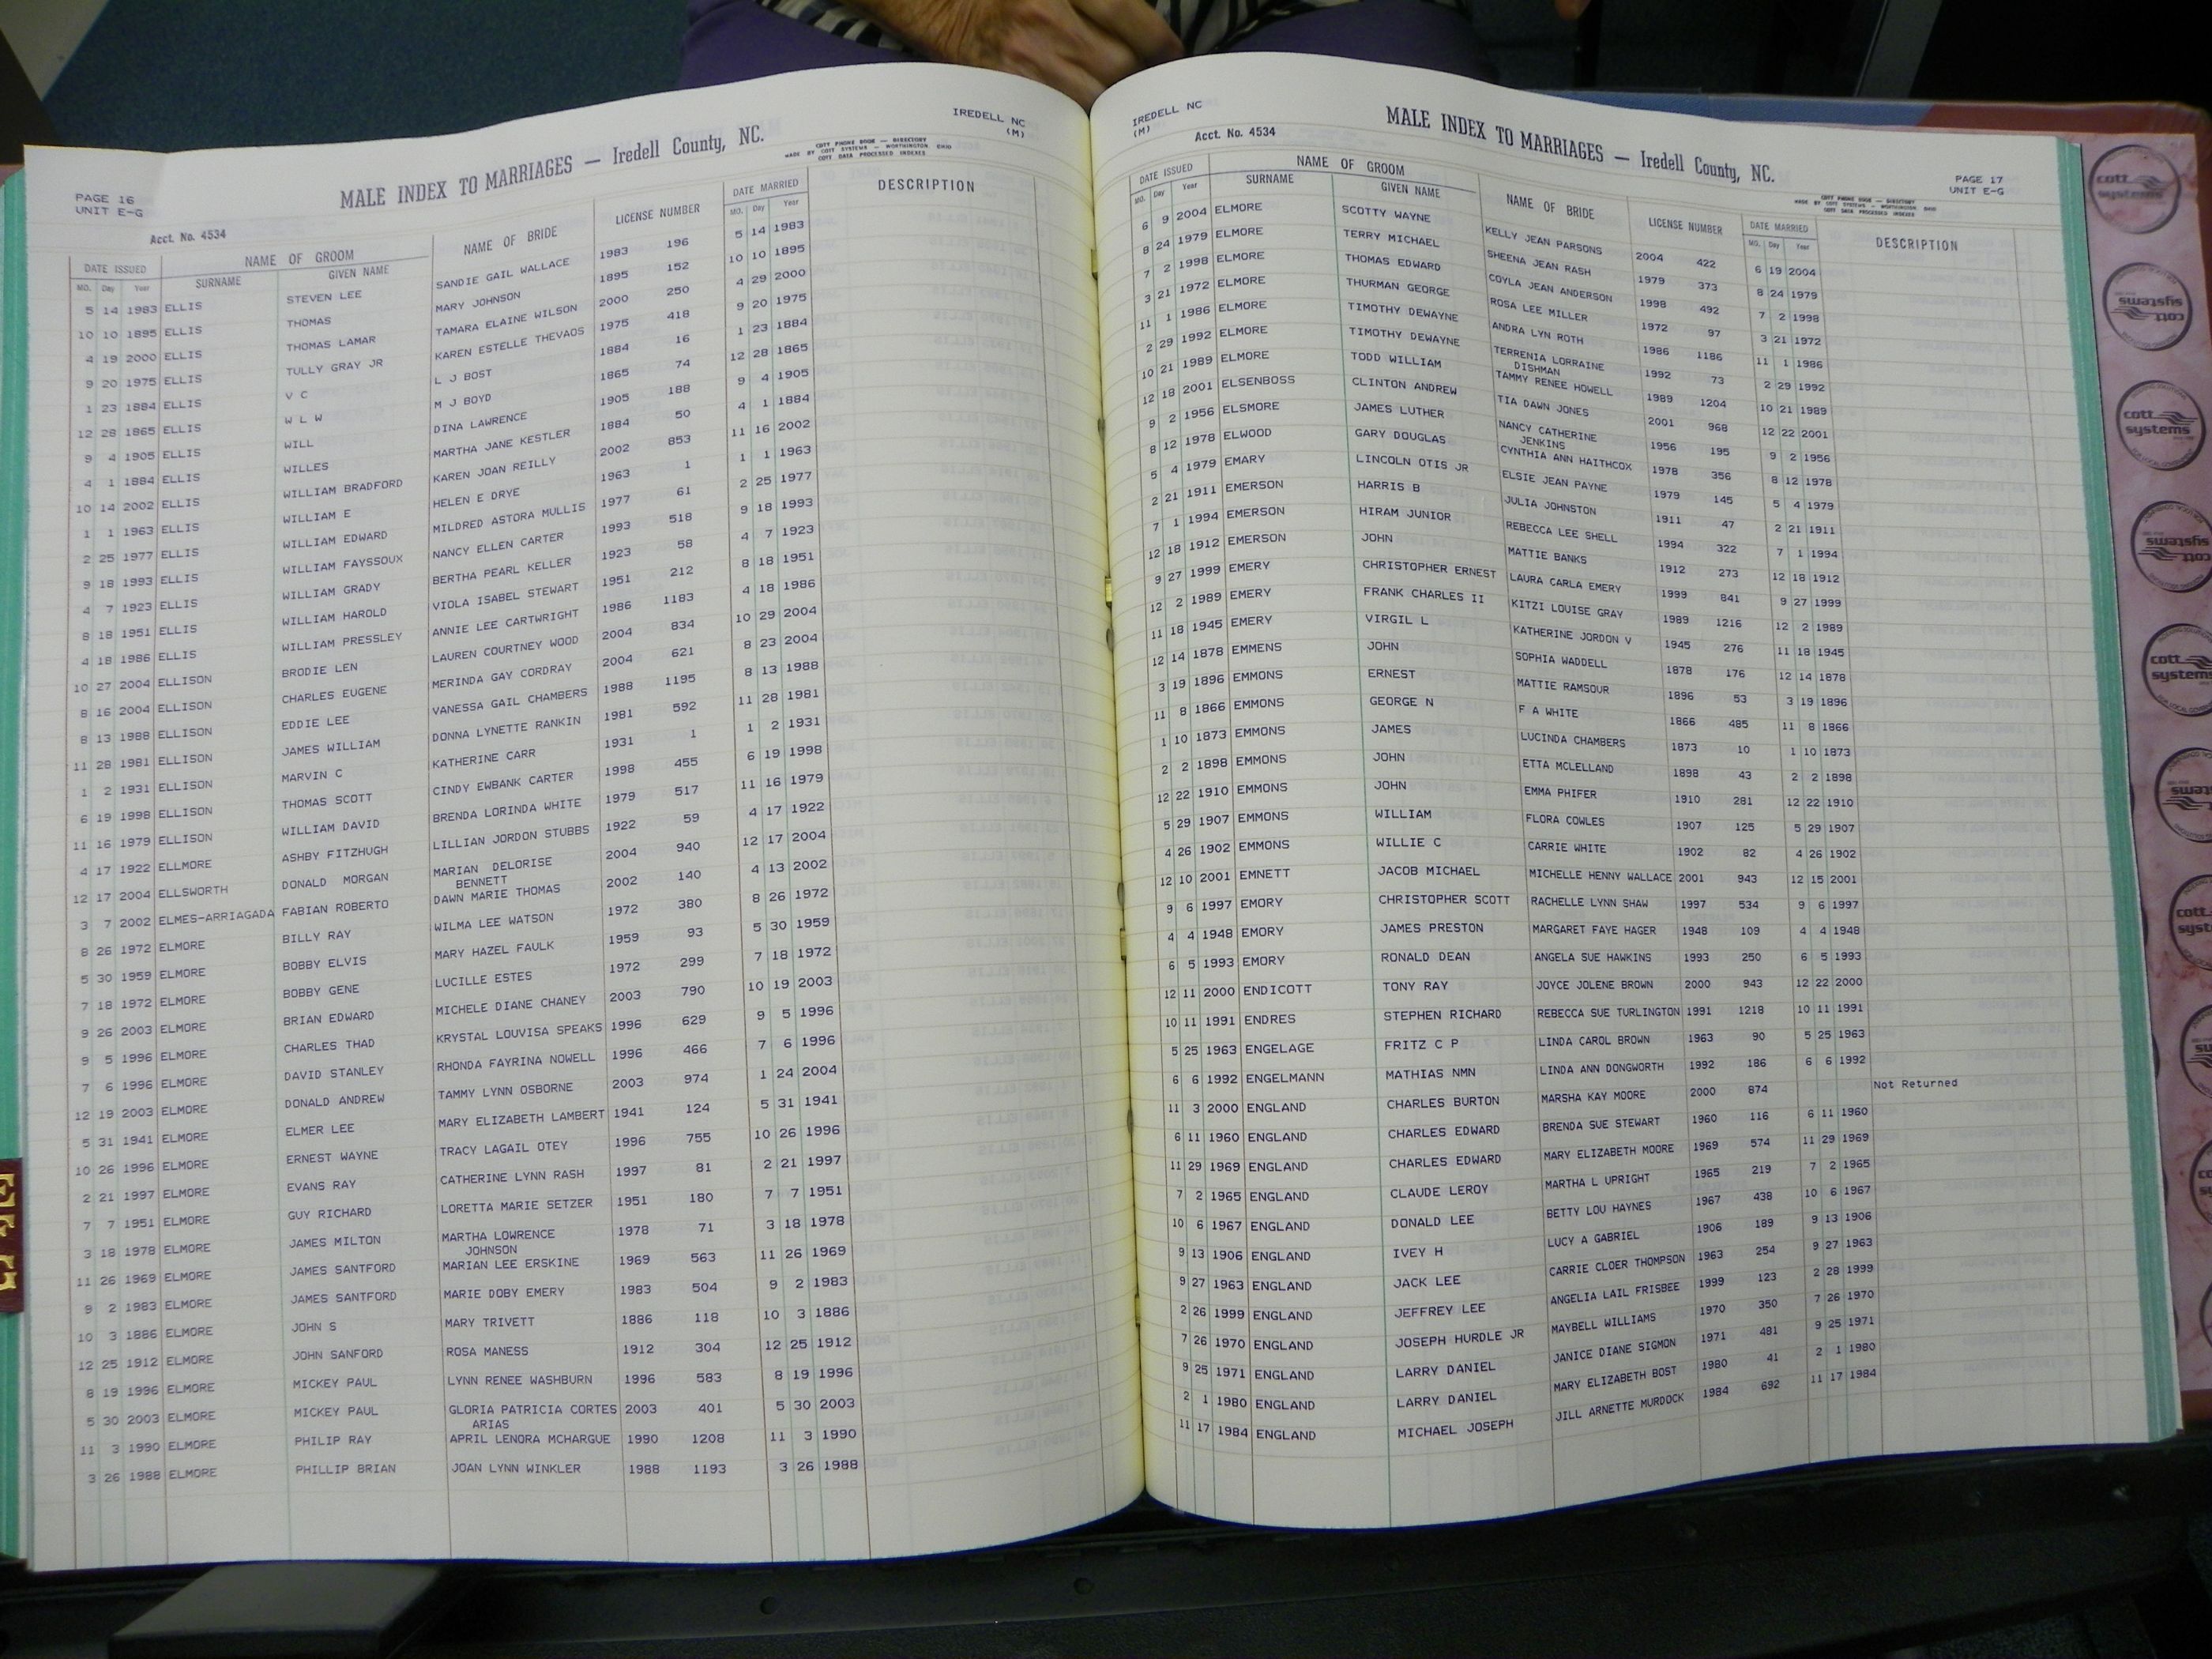 IREDELL NC
(M)
MALE INDEX TO MARRIAGES — Iredell County, NC.
COTT PHONE BOOK — DIRECTORY
MADE BY COTT SYSTEMS — WORTHINGTON, OHIO
COTT DATA PROCESSED INDEXES
PAGE 16
UNIT E-G
Acct. No. 4534
DATE ISSUED NAME OF GROOM NAME OF BRIDE LICENSE NUMBER DATE MARRIED DESCRIPTION
MO. Day Year SURNAME GIVEN NAME MO. Day Year
5 14 1983 ELLIS STEVEN LEE SANDIE GAIL WALLACE 1983 196 5 14 1983
10 10 1895 ELLIS THOMAS MARY JOHNSON 1895 152 10 10 1895
4 19 2000 ELLIS THOMAS LAMAR TAMARA ELAINE WILSON 2000 250 4 29 2000
9 20 1975 ELLIS TULLY GRAY JR KAREN ESTELLE THEVAOS 1975 418 9 20 1975
1 23 1884 ELLIS V C L J BOST 1884 16 1 23 1884
12 28 1865 ELLIS W L W M J BOYD 1865 74 12 28 1865
9 4 1905 ELLIS WILL DINA LAWRENCE 1905 188 9 4 1905
4 1 1884 ELLIS WILLES MARTHA JANE KESTLER 1884 50 4 1 1884
10 14 2002 ELLIS WILLIAM BRADFORD KAREN JOAN REILLY 2002 853 11 16 2002
1 1 1963 ELLIS WILLIAM E HELEN E DRYE 1963 1 1 1 1963
2 25 1977 ELLIS WILLIAM EDWARD MILDRED ASTORA MULLIS 1977 61 2 25 1977
9 18 1993 ELLIS WILLIAM FAYSSOUX NANCY ELLEN CARTER 1993 518 9 18 1993
4 7 1923 ELLIS WILLIAM GRADY BERTHA PEARL KELLER 1923 58 4 7 1923
8 18 1951 ELLIS WILLIAM HAROLD VIOLA ISABEL STEWART 1951 212 8 18 1951
4 18 1986 ELLIS WILLIAM PRESSLEY ANNIE LEE CARTWRIGHT 1986 1183 4 18 1986
10 27 2004 ELLISON BRODIE LEN LAUREN COURTNEY WOOD 2004 834 10 29 2004
8 16 2004 ELLISON CHARLES EUGENE MERINDA GAY CORDRAY 2004 621 8 23 2004
8 13 1988 ELLISON EDDIE LEE VANESSA GAIL CHAMBERS 1988 1195 8 13 1988
11 28 1981 ELLISON JAMES WILLIAM DONNA LYNETTE RANKIN 1981 592 11 28 1981
1 2 1931 ELLISON MARVIN C KATHERINE CARR 1931 1 1 2 1931
6 19 1998 ELLISON THOMAS SCOTT CINDY EWBANK CARTER 1998 455 6 19 1998
11 16 1979 ELLISON WILLIAM DAVID BRENDA LORINDA WHITE 1979 517 11 16 1979
4 17 1922 ELLMORE ASHBY FITZHUGH LILLIAN JORDON STUBBS 1922 59 4 17 1922
12 17 2004 ELLSWORTH DONALD MORGAN MARIAN DELORISE 2004 940 12 17 2004
BENNETT
3 7 2002 ELMES-ARRIAGADA FABIAN ROBERTO DAWN MARIE THOMAS 2002 140 4 13 2002
8 26 1972 ELMORE BILLY RAY WILMA LEE WATSON 1972 380 8 26 1972
5 30 1959 ELMORE BOBBY ELVIS MARY HAZEL FAULK 1959 93 5 30 1959
7 18 1972 ELMORE BOBBY GENE LUCILLE ESTES 1972 299 7 18 1972
9 26 2003 ELMORE BRIAN EDWARD MICHELE DIANE CHANEY 2003 790 10 19 2003
9 5 1996 ELMORE CHARLES THAD KRYSTAL LOUVISA SPEAKS 1996 629 9 5 1996
7 6 1996 ELMORE DAVID STANLEY RHONDA FAYRINA NOWELL 1996 466 7 6 1996
12 19 2003 ELMORE DONALD ANDREW TAMMY LYNN OSBORNE 2003 974 1 24 2004
5 31 1941 ELMORE ELMER LEE MARY ELIZABETH LAMBERT 1941 124 5 31 1941
10 26 1996 ELMORE ERNEST WAYNE TRACY LAGAIL OTEY 1996 755 10 26 1996
2 21 1997 ELMORE EVANS RAY CATHERINE LYNN RASH 1997 81 2 21 1997
7 7 1951 ELMORE GUY RICHARD LORETTA MARIE SETZER 1951 180 7 7 1951
3 18 1978 ELMORE JAMES MILTON MARTHA LOWRENCE 1978 71 3 18 1978
JOHNSON
11 26 1969 ELMORE JAMES SANTFORD MARIAN LEE ERSKINE 1969 563 11 26 1969
9 2 1983 ELMORE JAMES SANTFORD MARIE DOBY EMERY 1983 504 9 2 1983
10 3 1886 ELMORE JOHN S MARY TRIVETT 1886 118 10 3 1886
12 25 1912 ELMORE JOHN SANFORD ROSA MANESS 1912 304 12 25 1912
8 19 1996 ELMORE MICKEY PAUL LYNN RENEE WASHBURN 1996 583 8 19 1996
5 30 2003 ELMORE MICKEY PAUL GLORIA PATRICIA CORTES 2003 401 5 30 2003
ARIAS
11 3 1990 ELMORE PHILIP RAY APRIL LENORA MCHARGUE 1990 1208 11 3 1990
3 26 1988 ELMORE PHILLIP BRIAN JOAN LYNN WINKLER 1988 1193 3 26 1988
E F G
IREDELL NC
(M)
Acct. No. 4534
MALE INDEX TO MARRIAGES — Iredell County, NC.
COTT PHONE BOOK — DIRECTORY
MADE BY COTT SYSTEMS — WORTHINGTON, OHIO
COTT DATA PROCESSED INDEXES
PAGE 17
UNIT E-G
DATE ISSUED NAME OF GROOM NAME OF BRIDE LICENSE NUMBER DATE MARRIED DESCRIPTION
MO. Day Year SURNAME GIVEN NAME MO. Day Year
6 9 2004 ELMORE SCOTTY WAYNE KELLY JEAN PARSONS 2004 422 6 19 2004
8 24 1979 ELMORE TERRY MICHAEL SHEENA JEAN RASH 1979 373 8 24 1979
7 2 1998 ELMORE THOMAS EDWARD COYLA JEAN ANDERSON 1998 492 7 2 1998
3 21 1972 ELMORE THURMAN GEORGE ROSA LEE MILLER 1972 97 3 21 1972
11 1 1986 ELMORE TIMOTHY DEWAYNE ANDRA LYN ROTH 1986 1186 11 1 1986
2 29 1992 ELMORE TIMOTHY DEWAYNE TERRENIA LORRAINE 1992 73 2 29 1992
DISHMAN
10 21 1989 ELMORE TODD WILLIAM TAMMY RENEE HOWELL 1989 1204 10 21 1989
12 18 2001 ELSENBOSS CLINTON ANDREW TIA DAWN JONES 2001 968 12 22 2001
9 2 1956 ELSMORE JAMES LUTHER NANCY CATHERINE 1956 195 9 2 1956
JENKINS
8 12 1978 ELWOOD GARY DOUGLAS CYNTHIA ANN HAITHCOX 1978 356 8 12 1978
5 4 1979 EMARY LINCOLN OTIS JR ELSIE JEAN PAYNE 1979 145 5 4 1979
2 21 1911 EMERSON HARRIS B JULIA JOHNSTON 1911 47 2 21 1911
7 1 1994 EMERSON HIRAM JUNIOR REBECCA LEE SHELL 1994 322 7 1 1994
12 18 1912 EMERSON JOHN MATTIE BANKS 1912 273 12 18 1912
9 27 1999 EMERY CHRISTOPHER ERNEST LAURA CARLA EMERY 1999 841 9 27 1999
12 2 1989 EMERY FRANK CHARLES II KITZI LOUISE GRAY 1989 1216 12 2 1989
11 18 1945 EMERY VIRGIL L KATHERINE JORDON V 1945 276 11 18 1945
12 14 1878 EMMENS JOHN SOPHIA WADDELL 1878 176 12 14 1878
3 19 1896 EMMONS ERNEST MATTIE RAMSOUR 1896 53 3 19 1896
11 8 1866 EMMONS GEORGE N F A WHITE 1866 485 11 8 1866
1 10 1873 EMMONS JAMES LUCINDA CHAMBERS 1873 10 1 10 1873
2 2 1898 EMMONS JOHN ETTA MCLELLAND 1898 43 2 2 1898
12 22 1910 EMMONS JOHN EMMA PHIFER 1910 281 12 22 1910
5 29 1907 EMMONS WILLIAM FLORA COWLES 1907 125 5 29 1907
4 26 1902 EMMONS WILLIE C CARRIE WHITE 1902 82 4 26 1902
12 10 2001 EMNETT JACOB MICHAEL MICHELLE HENNY WALLACE 2001 943 12 15 2001
9 6 1997 EMORY CHRISTOPHER SCOTT RACHELLE LYNN SHAW 1997 534 9 6 1997
4 4 1948 EMORY JAMES PRESTON MARGARET FAYE HAGER 1948 109 4 4 1948
6 5 1993 EMORY RONALD DEAN ANGELA SUE HAWKINS 1993 250 6 5 1993
12 11 2000 ENDICOTT TONY RAY JOYCE JOLENE BROWN 2000 943 12 22 2000
10 11 1991 ENDRES STEPHEN RICHARD REBECCA SUE TURLINGTON 1991 1218 10 11 1991
5 25 1963 ENGELAGE FRITZ C P LINDA CAROL BROWN 1963 90 5 25 1963
6 6 1992 ENGELMANN MATHIAS NMN LINDA ANN DONGWORTH 1992 186 6 6 1992
11 3 2000 ENGLAND CHARLES BURTON MARSHA KAY MOORE 2000 874 Not Returned
6 11 1960 ENGLAND CHARLES EDWARD BRENDA SUE STEWART 1960 116 6 11 1960
11 29 1969 ENGLAND CHARLES EDWARD MARY ELIZABETH MOORE 1969 574 11 29 1969
7 2 1965 ENGLAND CLAUDE LEROY MARTHA L UPRIGHT 1965 219 7 2 1965
10 6 1967 ENGLAND DONALD LEE BETTY LOU HAYNES 1967 438 10 6 1967
9 13 1906 ENGLAND IVEY H LUCY A GABRIEL 1906 189 9 13 1906
9 27 1963 ENGLAND JACK LEE CARRIE CLOER THOMPSON 1963 254 9 27 1963
2 26 1999 ENGLAND JEFFREY LEE ANGELIA LAIL FRISBEE 1999 123 2 28 1999
7 26 1970 ENGLAND JOSEPH HURDLE JR MAYBELL WILLIAMS 1970 350 7 26 1970
9 25 1971 ENGLAND LARRY DANIEL JANICE DIANE SIGMON 1971 481 9 25 1971
2 1 1980 ENGLAND LARRY DANIEL MARY ELIZABETH BOST 1980 41 2 1 1980
11 17 1984 ENGLAND MICHAEL JOSEPH JILL ARNETTE MURDOCK 1984 692 11 17 1984
cott
systems
cott
systems
cott
systems
cott
systems
cott
systems